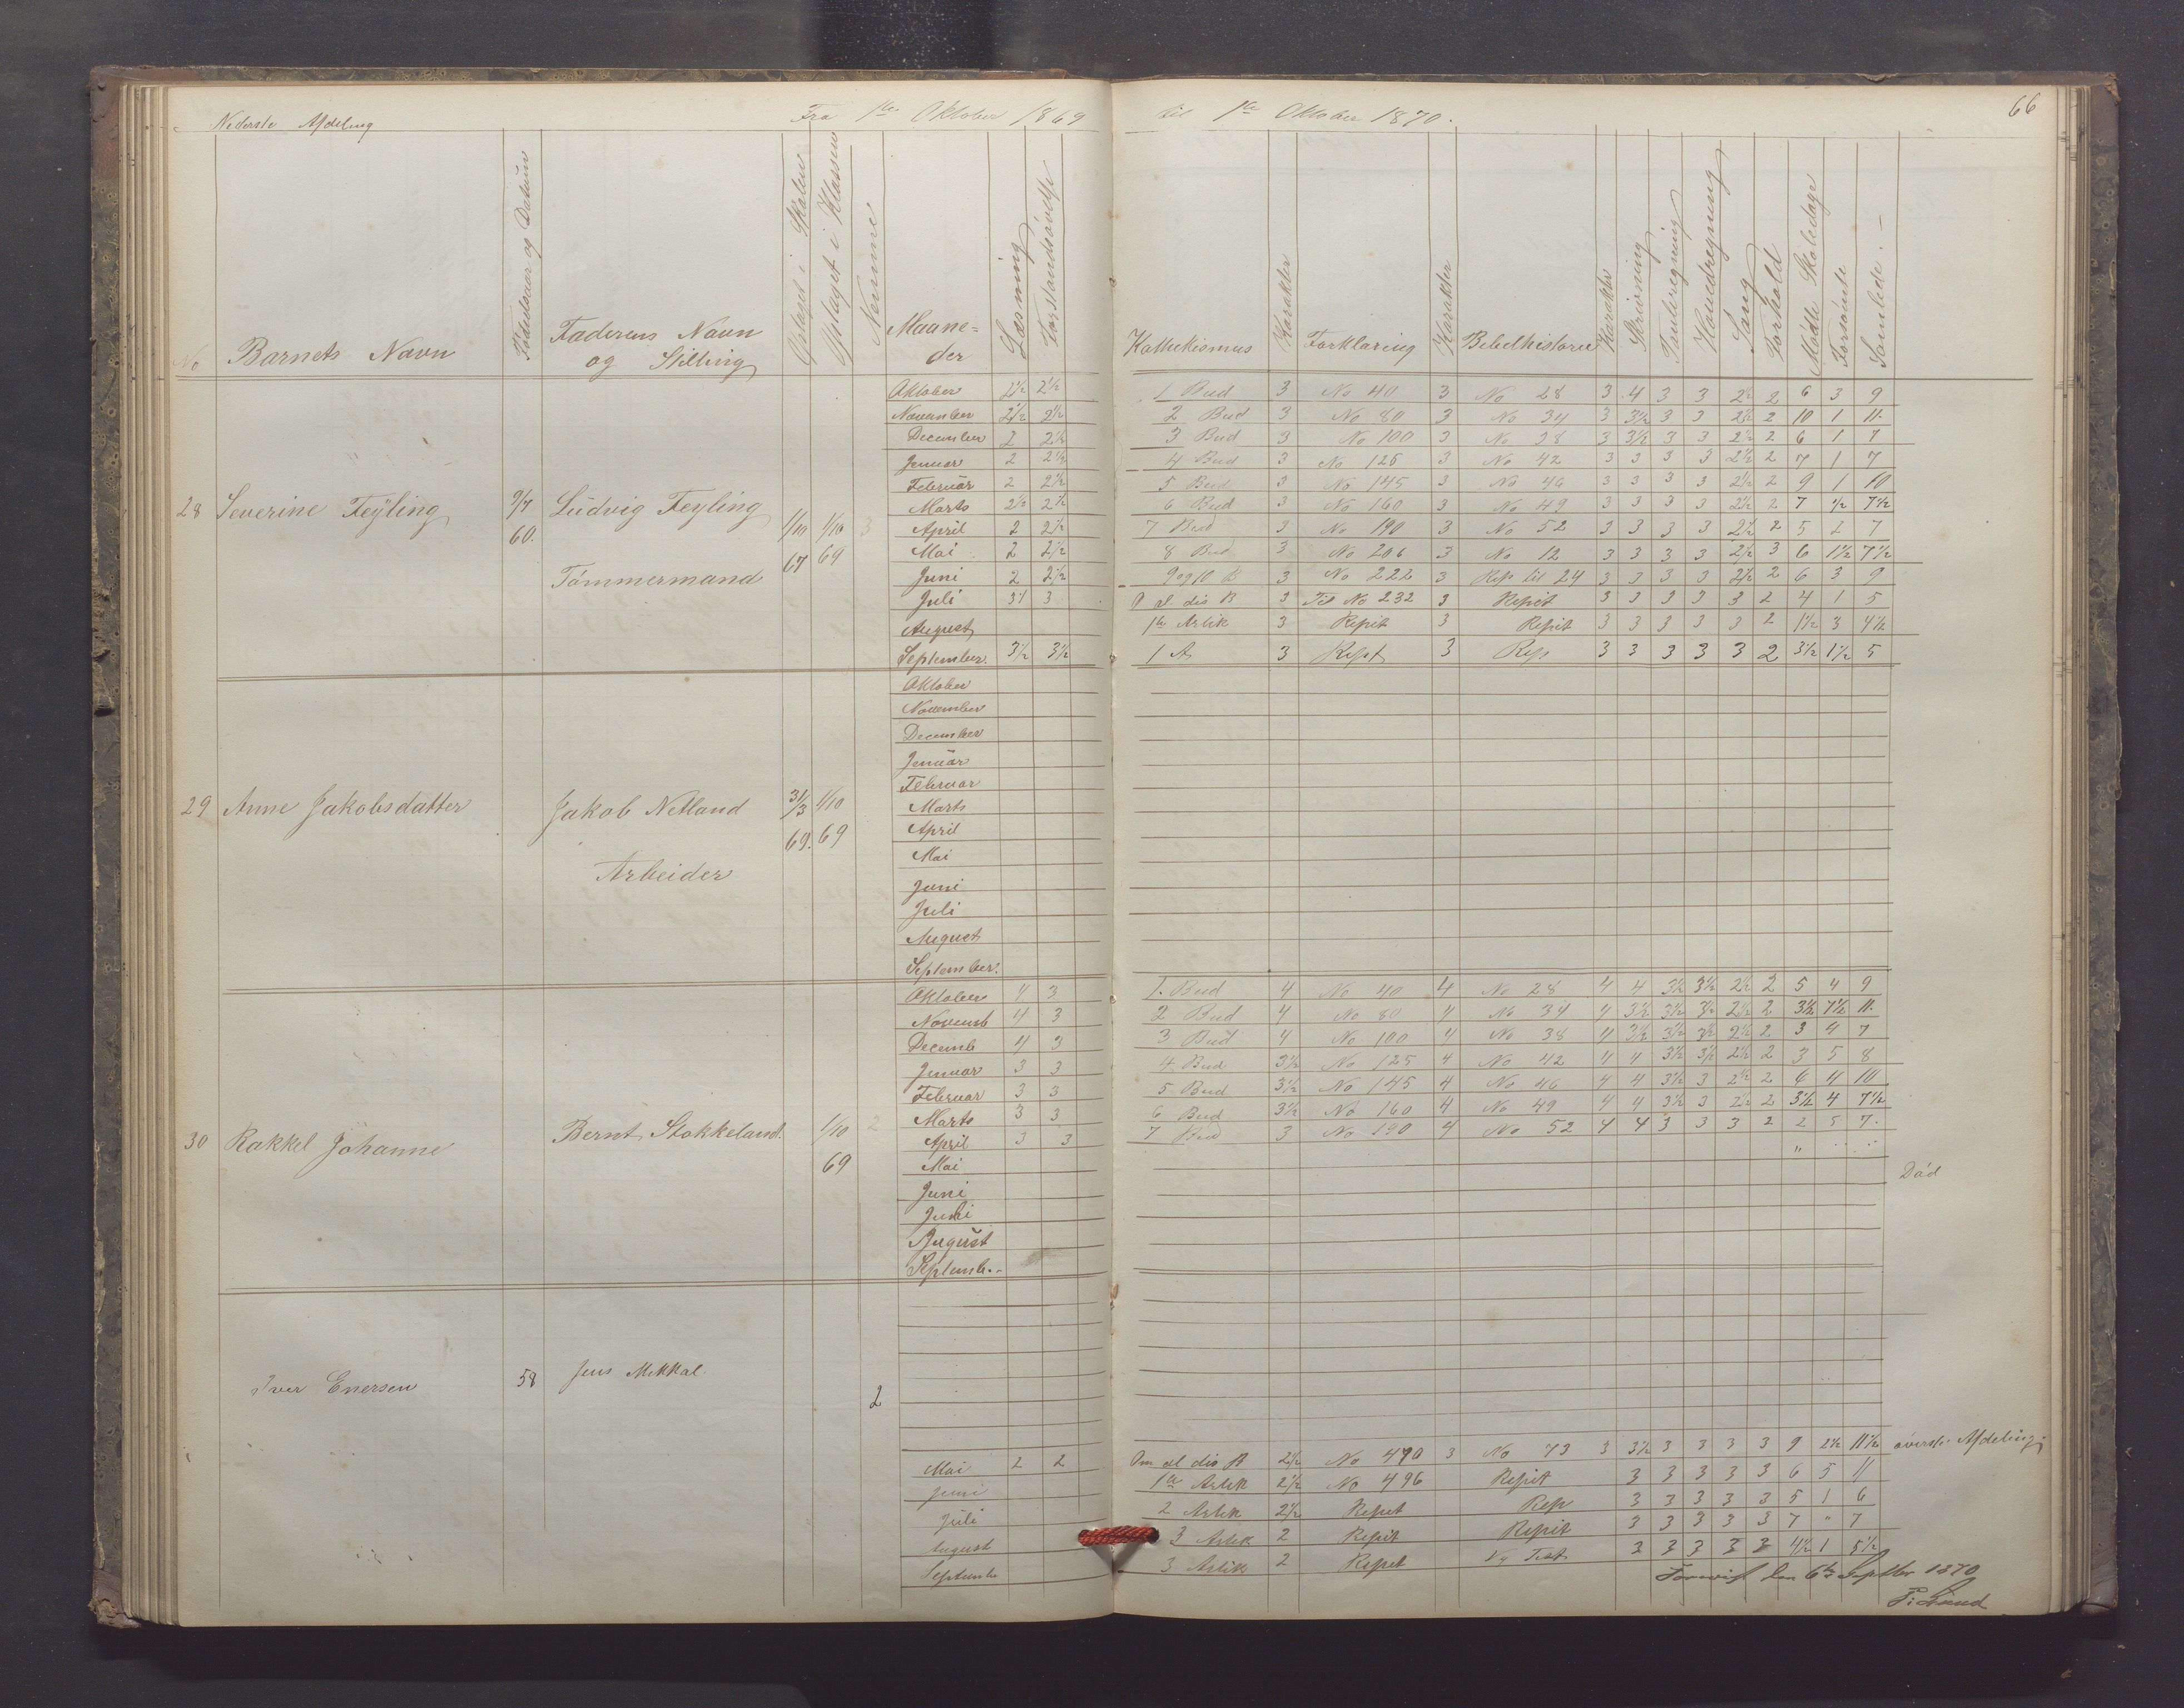 Nederste Afdeling Fra 1ste Oktober 1869 til 1ste Oktober 1870. 66
No Barnets Navn Fødselsaar og Datum Faderens Navn og Stilling Optaget i Skolen Optaget i Klassen Nemme Maaneder Læsning Forstandsøvelse Kathekismus Karakter Forklaring Karakter Bibelhistorie Karakter Skrivning Tavleregning Hovedregning Sang Forhold Mødte Skoledage Forsømte Samlede. –
28 Severine Feÿling 9/7 60. Lüdvig Feyling Tømmermand 1/10 67 1/10 69 3
Oktober 2½ 2½ 1 Bud 3 No 40 3 No 28 3 4 3 3 2½ 2 6 3 9
November 2½ 2½ 2 Bud 3 No 80 3 No 34 3 3½ 3 3 2½ 2 10 1 11.
December 2 2½ 3 Bud 3 No 100 3 No 38 3 3½ 3 3 2½ 2 6 1 7
Januar 2 2½ 4 Bud 3 No 125 3 No 42 3 3 3 3 2½ 2 7 1 7
Februar 2 2½ 5 Bud 3 No 145 3 No 46 3 3 3 3 2½ 2 9 1 10
Marts 2½ 2½ 6 Bud 3 No 160 3 No 49 3 3 3 3 2½ 2 7 ½ 7½
April 2 2½ 7 Bud 3 No 190 3 No 52 3 3 3 3 2½ 2 5 2 7
Mai 2 2½ 8 Bud 3 No 206 3 No 12 3 3 3 3 2½ 3 6 1½ 7½
Juni 2 2½ 9 og 10 B 3 No 222 3 Rep til 24 3 3 3 3 2½ 2 6 3 9
Juli 3 al dis B 3 Til No 232 3 Repit 3 3 3 3 3 2 4 1 5
August 1ste Artik 3 Repet 3 Repit 3 3 3 3 3 2 1½ 3 4½
September. 3½ 3½ 1 A 3 Rept 3 Rep 3 3 3 3 3 2 3½ 1½ 5
29 Anne Jakobsdatter Jakob Netland Arbeider 31/3 69. 1/10 69
Oktober
November
December
Januar
Februar
Marts
April
Mai
Juni
Juli
August
September.
30 Rakkel Johanne Bernt Stokkeland. 1/10 69 2
Oktober 4 3 1. Bud 4 No 40 4 No 28 4 4 3½ 3½ 2½ 2 5 4 9
Novemb 4 3 2 Bud 4 No 80 4 No 34 4 3½ 3½ 3½ 2½ 2 3½ 7½ 11.
Decemb 4 3 3 Bud 4 No 100 4 No 38 4 3½ 3½ 3½ 2½ 2 3 4 7
Januar 3 3 4 Bud 3½ No 125 4 No 42 4 4 3½ 3½ 2½ 2 3 5 8
Februar 3 3 5 Bud 3½ No 145 4 No 46 4 4 3½ 3 2½ 2 6 4 10
Marts 3 3 6 Bud 3½ No 160 4 No 49 4 4 3½ 3 2½ 2 3½ 4 7½
April 3 3 7 Bud 3 No 190 4 No 52 4 4 3 3 3 2 2 5 7.
Mai "
Juni Død
Juli
Augüst
Septemb.
Iver Enersen 58 Jens Mekkal 2
Mai 2 2 Om al dis B 2½ No 490 3 No 73 3 3½ 3 3 3 3 9 2½ 11½ øverste Afdeling
Juni 1ste Artik 2½ No 496 Repit 3 3 3 3 3 6 5 11
Juli 2 Artik 2½ Repet Rep 3 3 3 3 3 5 1 6
August 3 Artik 2 Repit Repit 3 3 3 3 3 7 " 7
Septembe 3 Artik 2 Repet Ny Test 3 3 3 3 3 4½ 1 5½
Forevist den 6te Septbr 1870
P. Lund